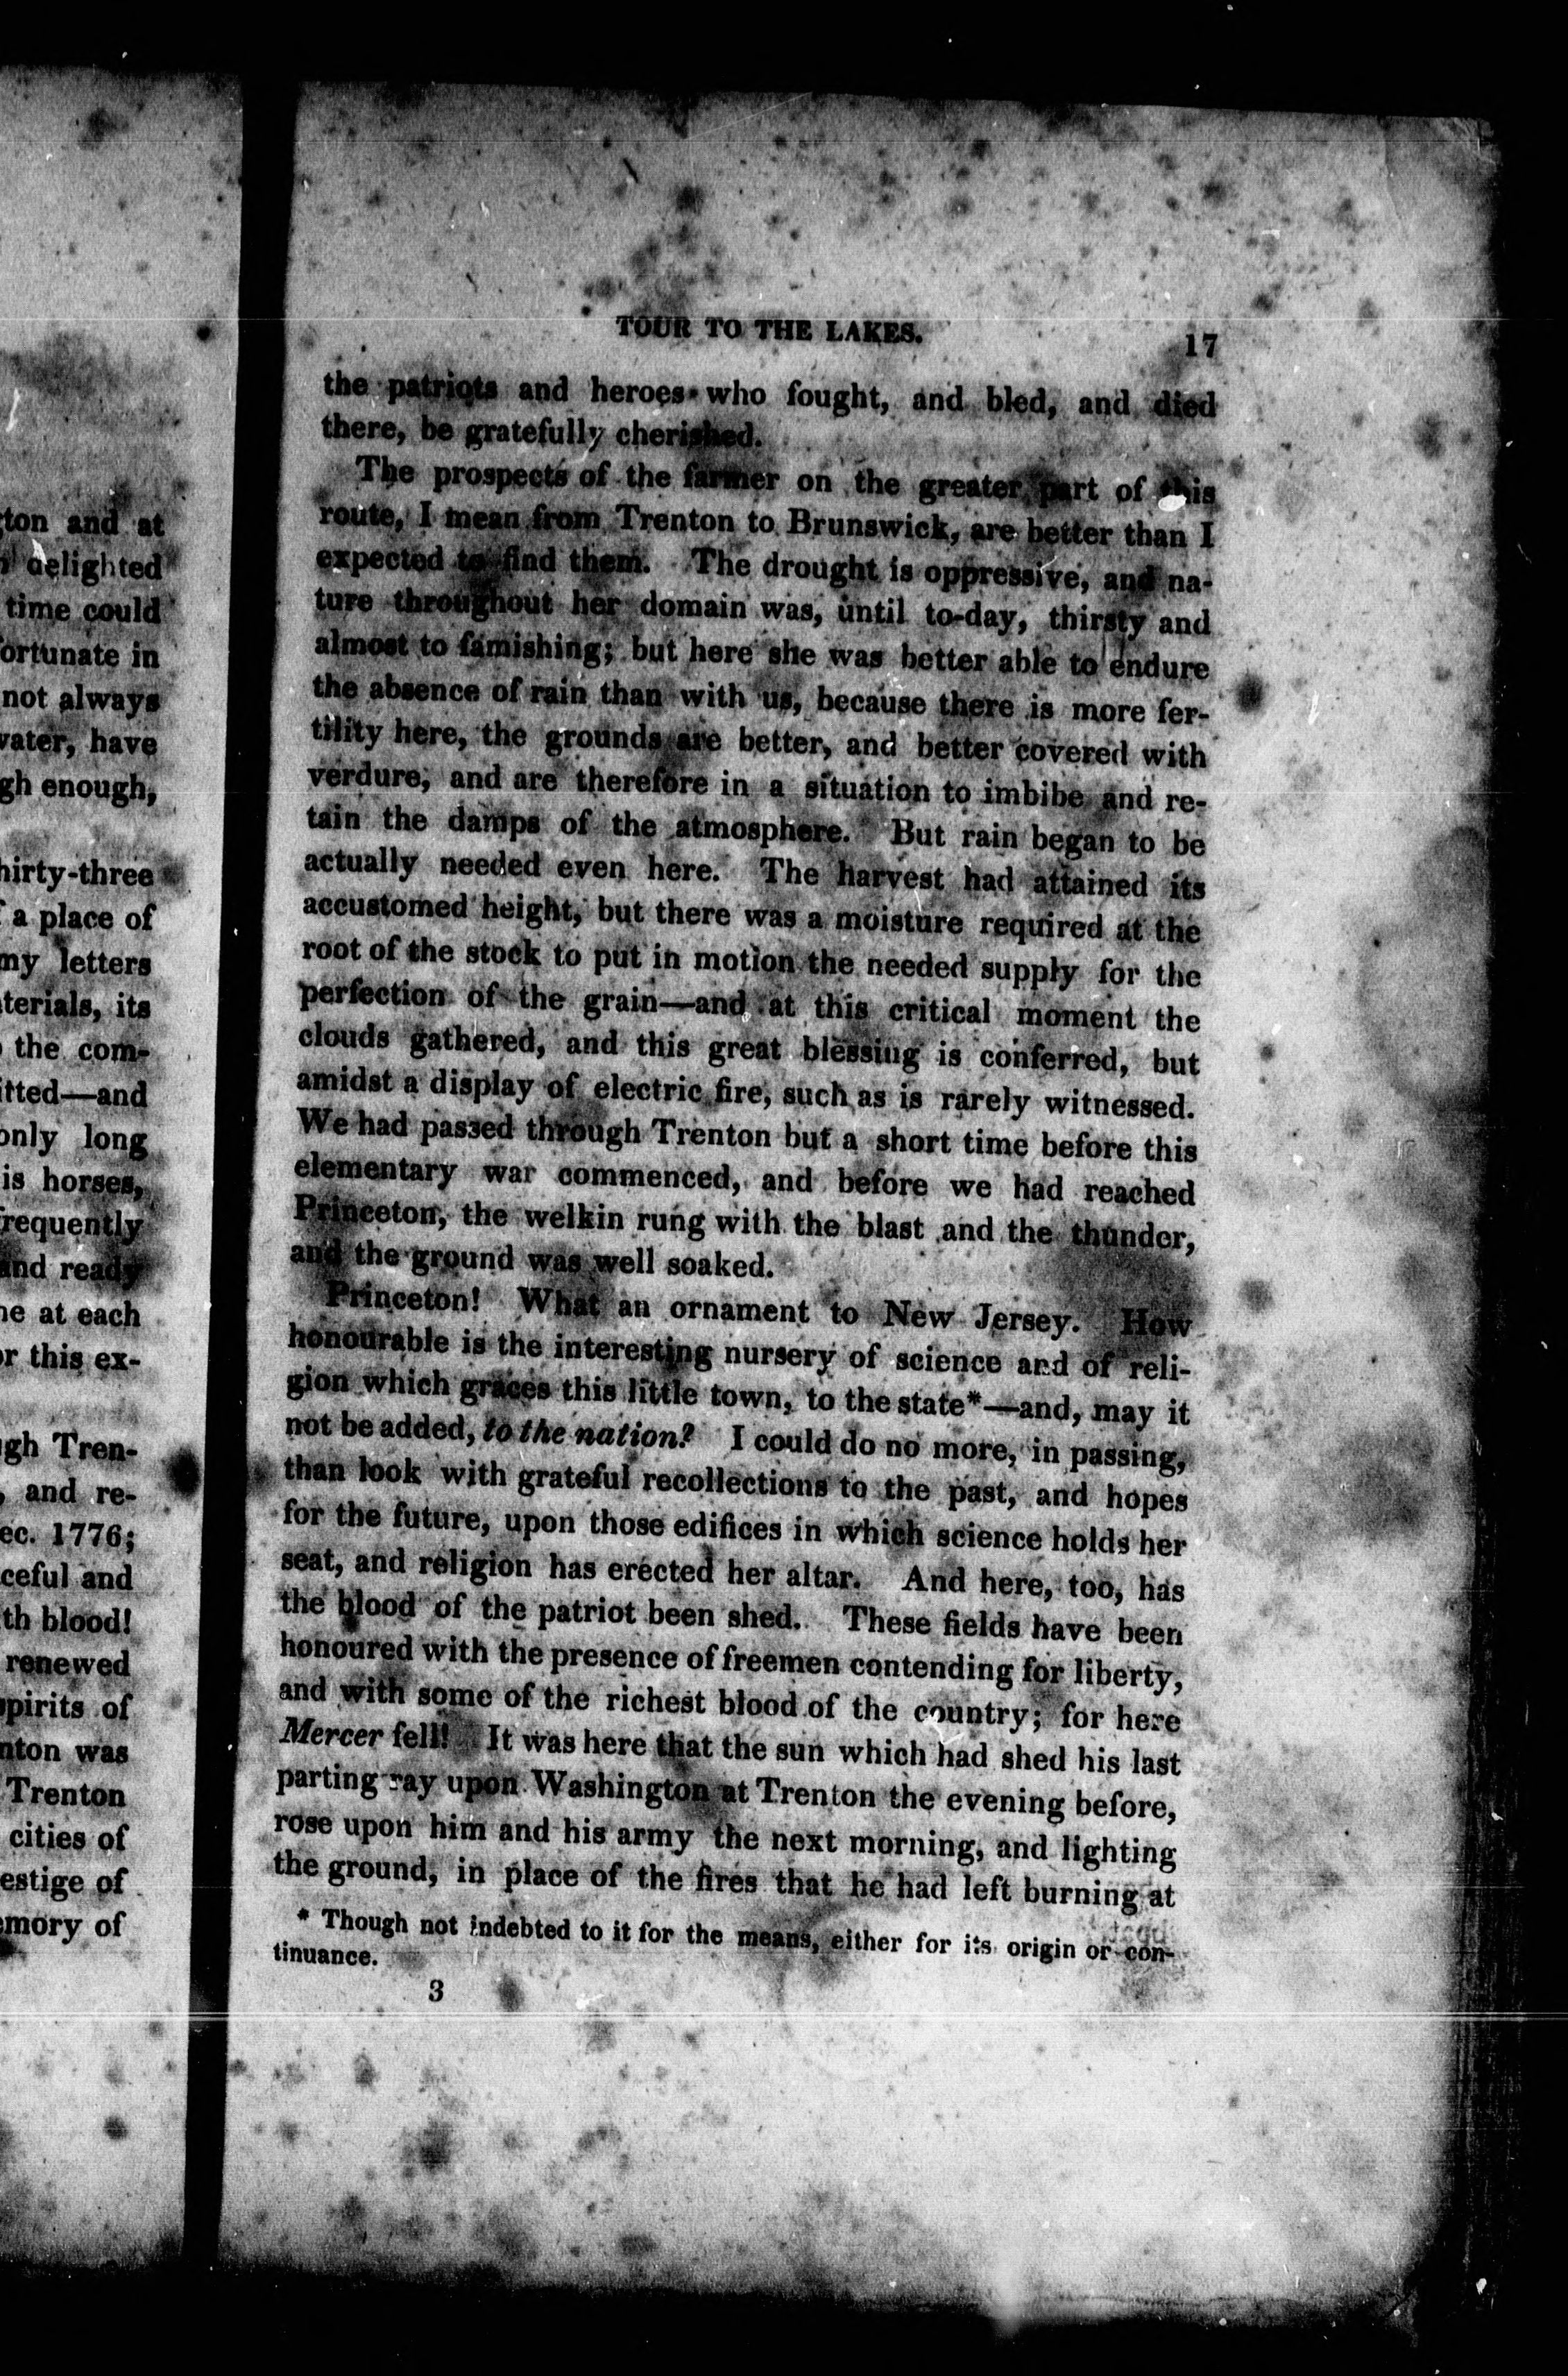 ton and at
delighted
time could
ortunate in
not always
vater, have
gh enough,
hirty-three
a place of
my letters
terials, its
the com-
itted—and
only long
is horses,
requently
and ready
ne at each
or this ex-
gh Tren-
, and re-
ec. 1776;
ceful and
th blood!
renewed
spirits of
nton was
Trenton
cities of
estige of
emory of
TOUR TO THE LAKES.
17
the patriots and heroes who fought, and bled, and died
there, be gratefully cherished.
The prospects of the farmer on the greater part of this
route, I mean from Trenton to Brunswick, are better than I
expected to find them. The drought is oppressive, and na-
ture throughout her domain was, until to-day, thirsty and
almost to famishing; but here she was better able to endure
the absence of rain than with us, because there is more fer-
tility here, the grounds are better, and better covered with
verdure, and are therefore in a situation to imbibe and re-
tain the damps of the atmosphere. But rain began to be
actually needed even here. The harvest had attained its
accustomed height, but there was a moisture required at the
root of the stock to put in motion the needed supply for the
perfection of the grain—and at this critical moment the
clouds gathered, and this great blessing is conferred, but
amidst a display of electric fire, such as is rarely witnessed.
We had passed through Trenton but a short time before this
elementary war commenced, and before we had reached
Princeton, the welkin rung with the blast and the thunder,
and the ground was well soaked.
Princeton! What an ornament to New Jersey. How
honourable is the interesting nursery of science and of reli-
gion which graces this little town, to the state*—and, may it
not be added, to the nation? I could do no more, in passing,
than look with grateful recollections to the past, and hopes
for the future, upon those edifices in which science holds her
seat, and religion has erected her altar. And here, too, has
the blood of the patriot been shed. These fields have been
honoured with the presence of freemen contending for liberty,
and with some of the richest blood of the country; for here
Mercer fell! It was here that the sun which had shed his last
parting ray upon Washington at Trenton the evening before,
rose upon him and his army the next morning, and lighting
the ground, in place of the fires that he had left burning at
* Though not indebted to it for the means, either for its origin or con-
tinuance.
3